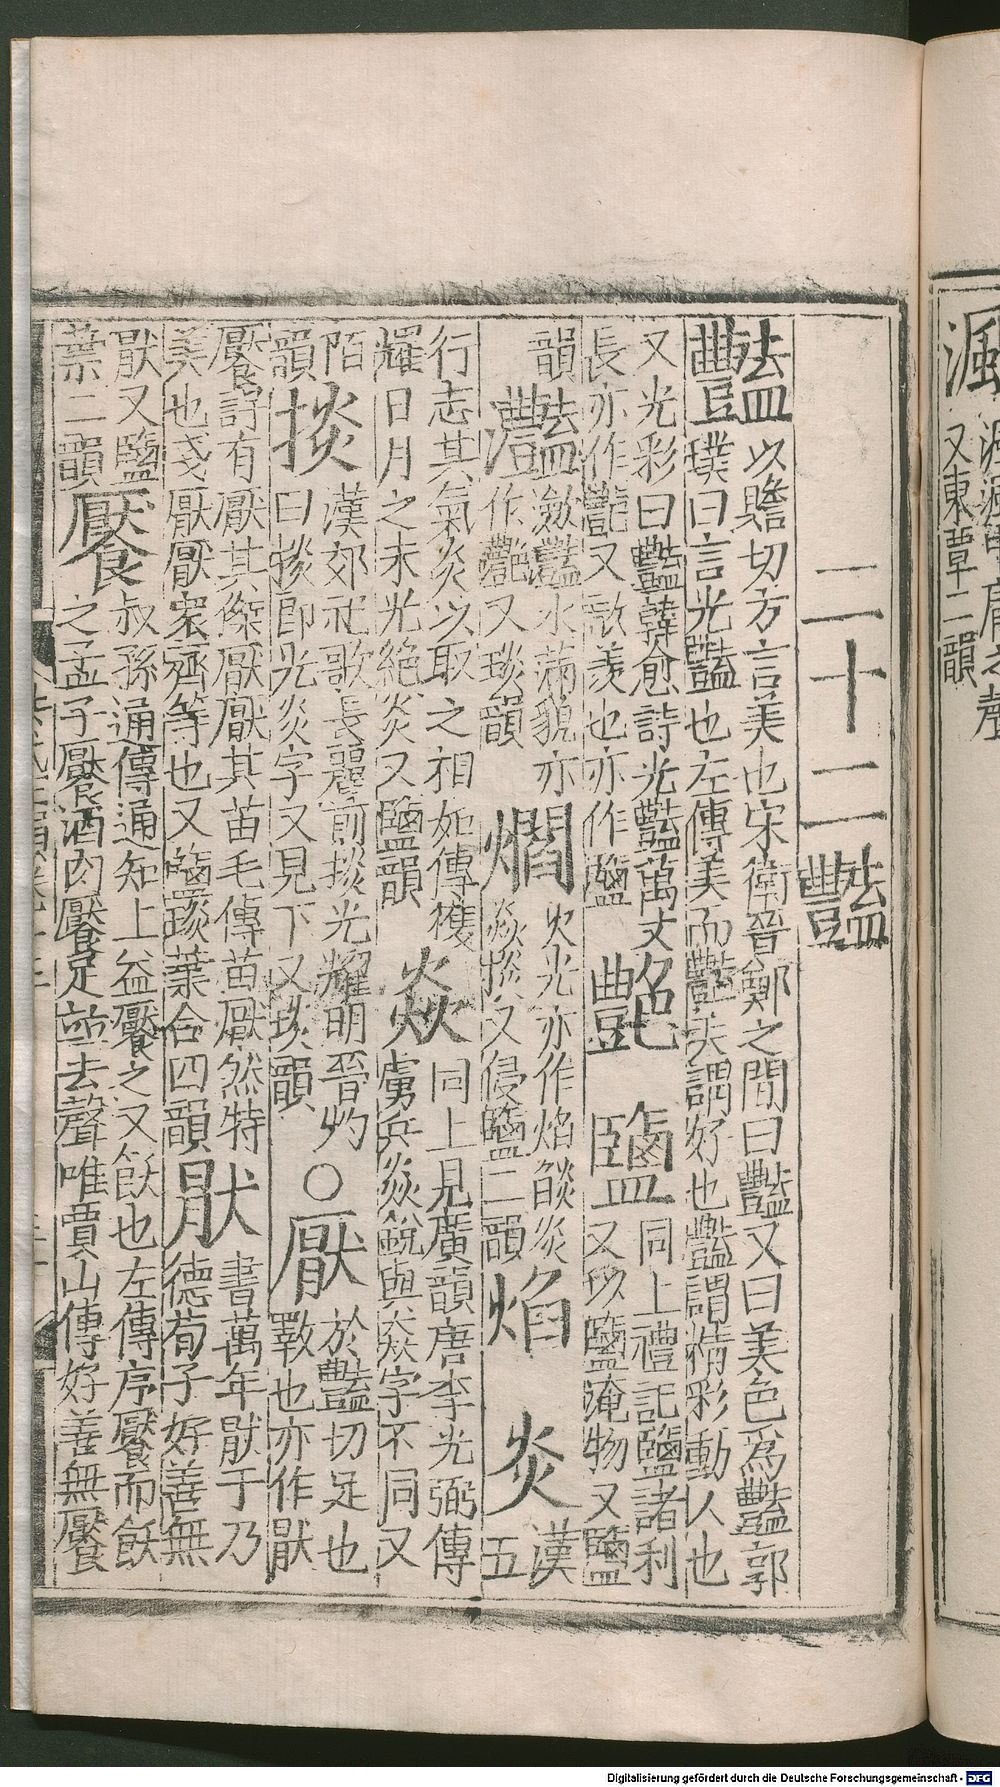 二十二豔
豔以贍切方言美也宋衛晉鄭之間曰豔又曰美色爲豔郭
璞曰言光豔也左傳美而豔夫謂好也豔謂精彩動人也
又光彩曰豔韓愈詩光豔萬丈
長亦作豓又歆羨也亦作鹽
艷
鹽同上禮記鹽諸利
又以鹽淹物又鹽
韻
灩瀲灩水滿貌亦
作灔又琰韻
爓火光亦作焰燄炎
焱掞又侵鹽二韻
焰
炎漢
五
行志其氣炎以取之相如傳獲
耀日月之末光絶炎又鹽韻
焱同上見廣韻唐李光弼傳
虜兵焱銳與猋字不同又
陌
韻
掞漢郊祀歌長麗前掞光耀明晉灼
曰掞即光炎字又見下又琰韻
○厭於豔切足也
斁也亦作猒
饜詩有厭其傑厭厭其苗毛傳苗厭然特
美也箋厭厭衆齊等也又鹽琰葉合四韻
猒書萬年猒于乃
德荀子好善無
猒又鹽
葉二韻
饜叔孫通傳通知上益饜之又飫也左傳序饜而飫
之孟子饜酒肉饜足竝去聲唯賈山傳好善無饜
渢
又東覃二韻
Digitalisierung gefördert durch die Deutsche Forschungsgemeinschaft - DFG